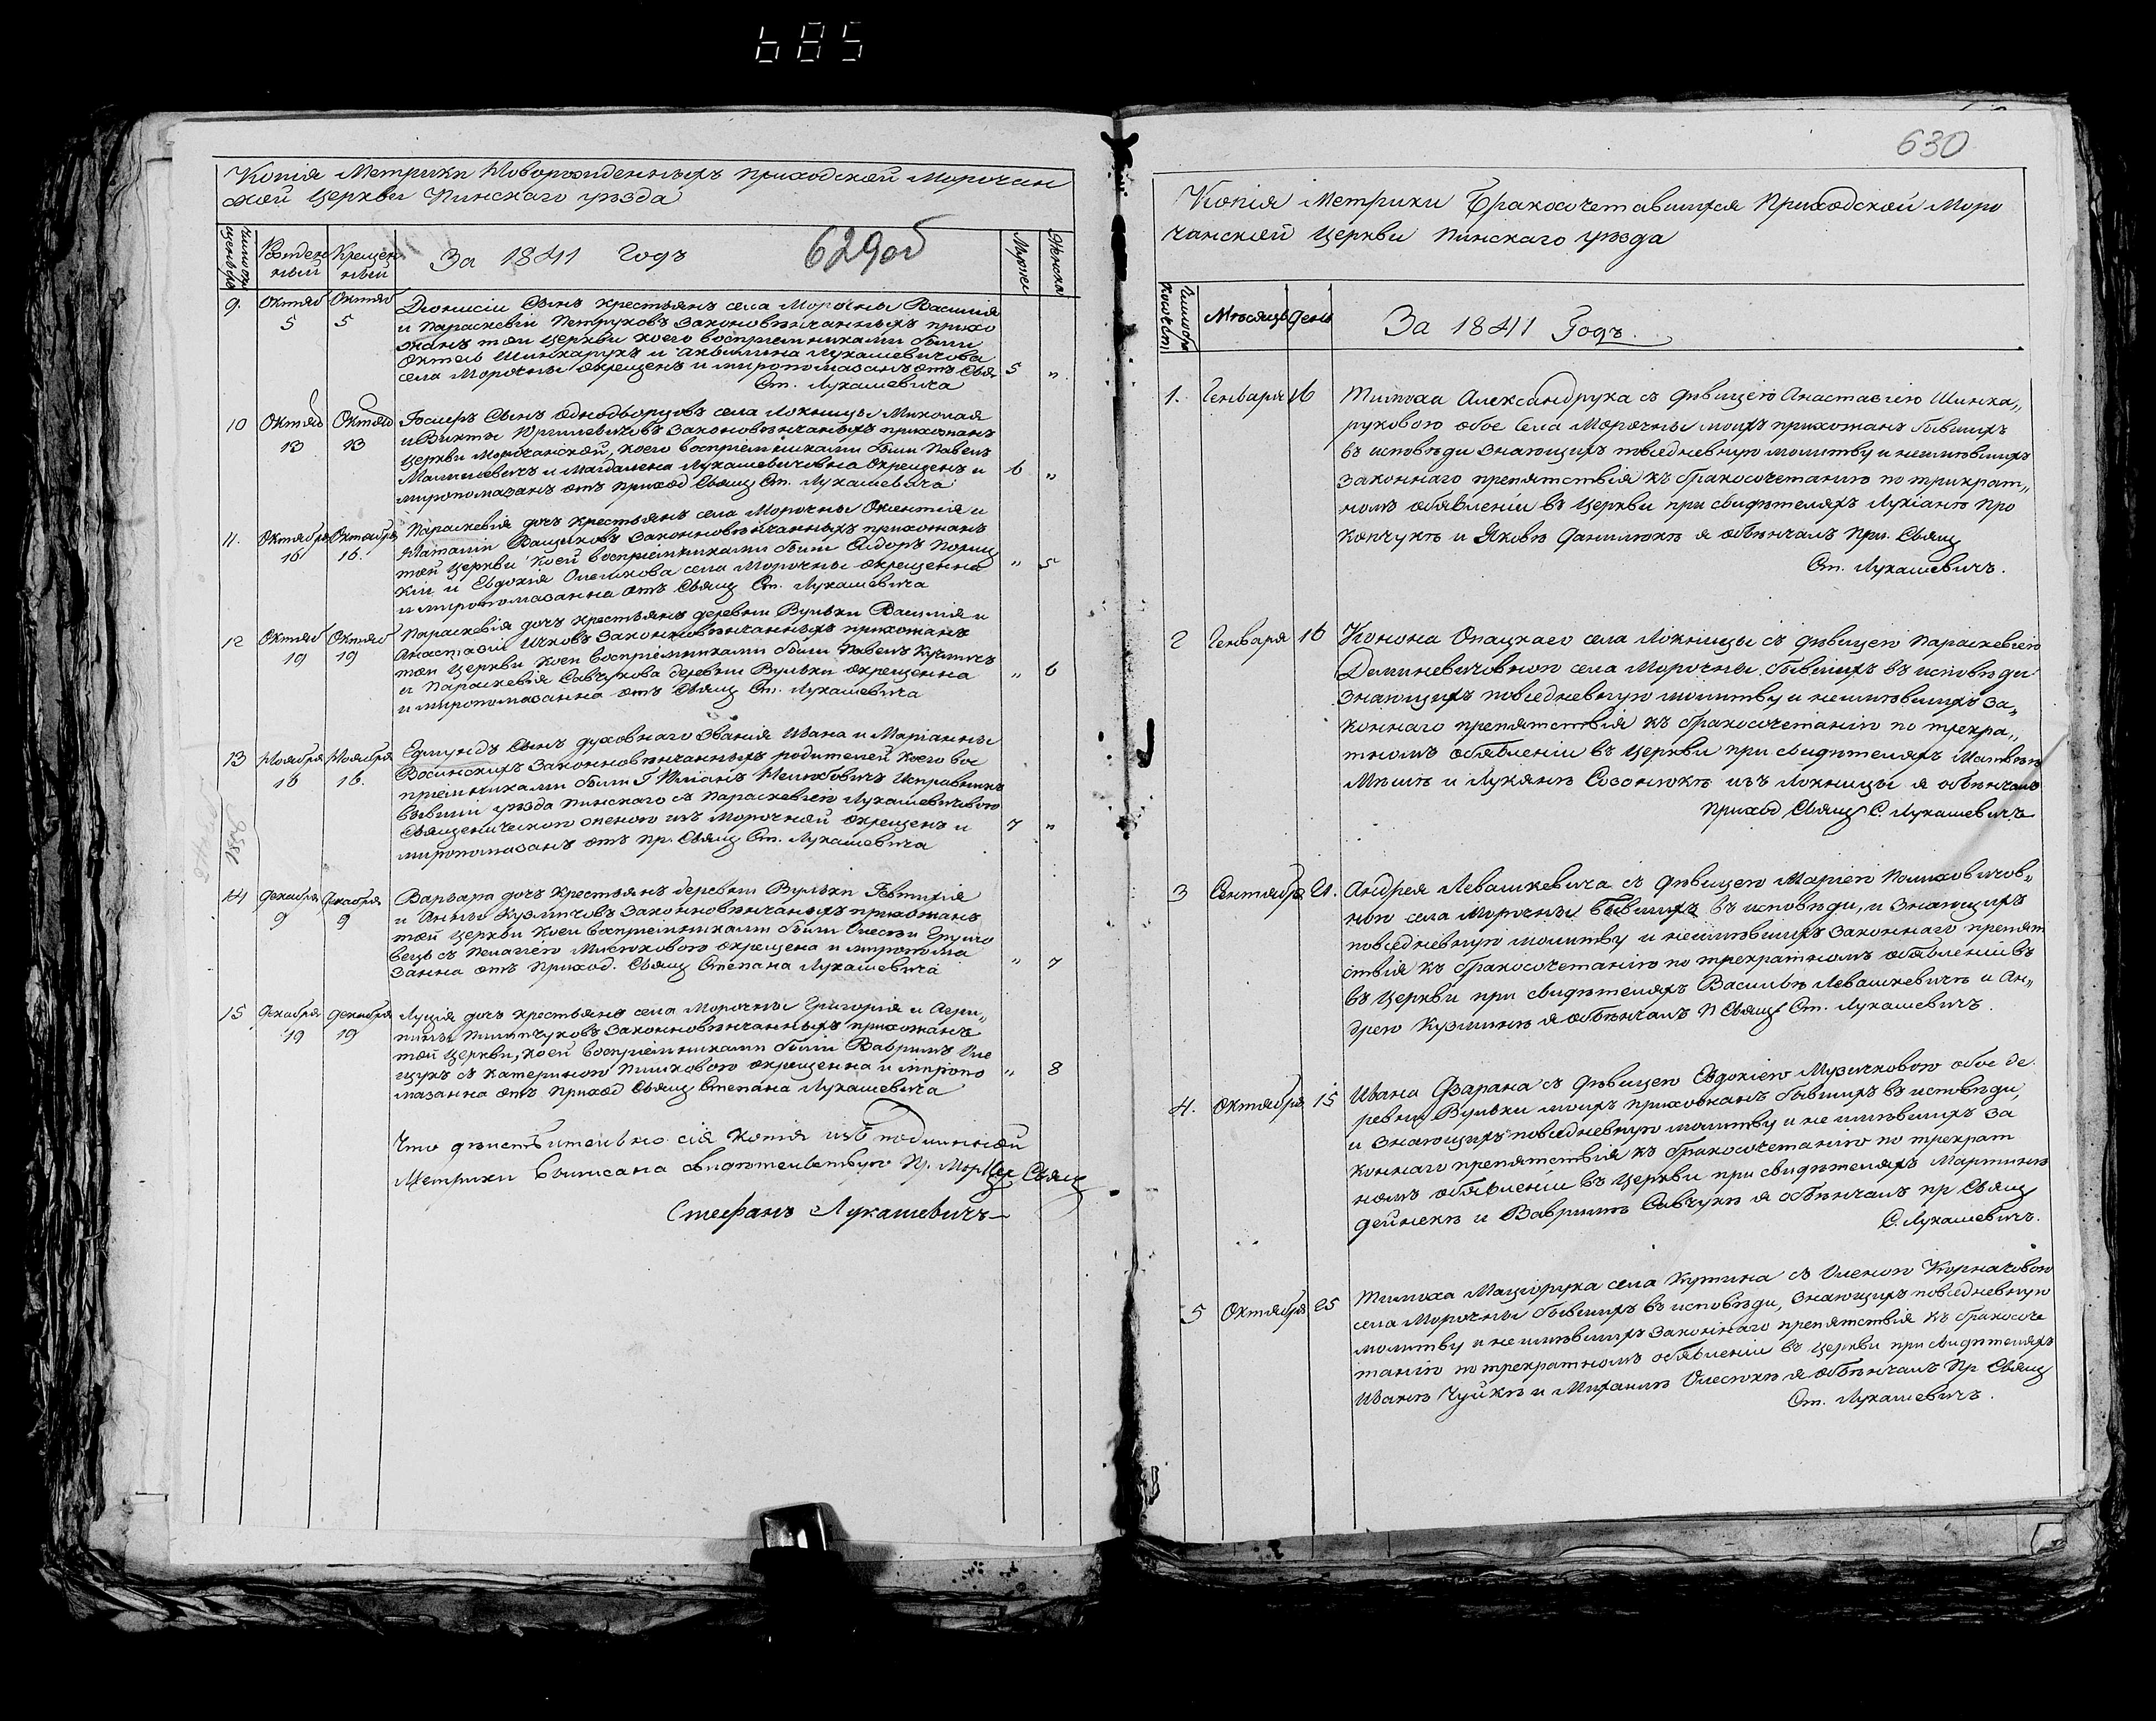 685
Копія Метрики Новорожденныхъ приходской Морочан
ской Церкви Пинскаго уѣзда
Рожден
ный
Крещен
ный
За 1841 Годъ
629об
Мужеск
Женска
9. Октяб 5 Октяб 5 Діонисій Сынъ крестьянъ села Морочны Василія
и Параскевіи Петруковъ Законовѣнчанныхъ прихо
жанъ той Церкви коего воспріемниками были
Шинкарукъ и Акилина Лукашевичова
села Морочны окрещенъ и миропомазанъ отъ Свя 5 „
Ст. Лукашевича
10 Октяб 13 Октяб 13 Сынъ однодворцовъ села Локницы Миколая
и Викты Юргилевичовъ Законовѣнчаныхъ прихожанъ
Церкви Морочанской, коего воспріемниками были Павелъ
и Магдалена Лукашевичовна Окрещенъ и 6 „
миропомазанъ отъ приход Свящ Ст. Лукашевича
11. Октября 16 Октября 16. Параскевія дочъ крестьянъ села Морочны Оксентія и
Наталіи Ващуковъ Законновѣнчанныхъ прихожанъ
той Церкви коей воспріемниками были Сидоръ
и Евдокія села Морочны окрещенна „ 5
и миропомазанна отъ Свящ Ст. Лукашевича
12 Октяб 19 Октяб 19 Параскевія дочъ крестьянъ деревни Вульки Василія и
Анастасіи Законновѣнчанныхъ прихожанъ
той Церкви коей воспріемниками были Павелъ Кузмичъ
и Параскевія Савчукова деревни Вульки окрещенна „ 6
и миропомазанна отъ Свящ Ст. Лукашевича
13 Ноября 16 Ноября 16. Едмундъ Сынъ духовнаго Званія Ивана и Маріанны
Законновѣнчанныхъ родителей коего вос
пріемниками были Г Исправникъ
бывшій уѣзда Пинскаго съ Параскевіею Лукашевичовою
Священическою женою изъ Морочной окрещенъ и 7 „
миропомазанъ отъ пр. Свящ Ст. Лукашевича
14 Декабря 9 Декабря 9 Варвара дочъ Крестьянъ деревни Вульки
и Анны Кузмичовъ Законновѣнчаныхъ прихожанъ
той Церкви коей воспріемниками были
съ Пелагіею окрещена и миропома
занна отъ приход. Свящ Степана Лукашевича „ 7
15 Декабря 19 Декабря 19 Луція дочъ крестьянъ села Морочны Григорія и Агри„
пины Законновѣнчанныхъ прихожанъ
той Церкви, коей воспріемниками были Вавринъ
съ Катериною окрещенна и миропо „ 8
мазанна отъ приход Свящ Степана Лукашевича
Что дѣйствительно сія копія изъ подлинной
Метрики Выписана свидѣтельствую Пр. Мор Цер Свящ
Стефанъ Лукашевичъ
630
Копія Метрики Бракосочетавшихся Приходской Моро
чанской Церкви Пинскаго уѣзда
Мѣсяцъ День
За 1841 Годъ.
1. Генваря 16 Тимоха Александрука съ дѣвицею Анастасіею Шинка„
руковою обое Села Морочны моихъ прихожанъ бывшихъ
въ исповѣди знающихъ повседневную молитву и неимѣвшихъ
законнаго препятствія къ бракосочетанію по трикрат„
номъ обявленіи въ Церкви при свидѣтеляхъ Лукіаню Про
копчукѣ и Яковѣ Данилюкѣ я обвѣнчалъ Пр. Свящ
Ст. Лукашевичъ.
2 Генваря 16 Конона Опацкаго села Локницы съ дѣвицею Параскевіею
села Морочны. бывшихъ въ исповѣди
Знающихъ повседневную молитву и неимѣвшихъ за„
коннаго препятствія къ бракосочетанію по трекра„
тномъ обявленіи въ Церкви при свидѣтеляхъ Матвѣѣ
и Лукянѣ Созонюкѣ изъ Локницы я обвѣнчалъ
Приход Свящ С. Лукашевичъ
3 Сентября 21. Андрея Левашкевича съ дѣвицею Маріею
ною села Морочны бывшихъ въ исповѣди, и Знающихъ
повседневную молитву и неимѣвшихъ законнаго препят
ствія къ бракосочетанію по трекратномъ обявленіи въ
въ Церкви при свидѣтеляхъ Василіѣ Левашкевичѣ и Ан„
дрею Кузминѣ я обвѣнчалъ П Свящ Ст. Лукашевичъ.
4. Октября 15 Ивана Фарана съ дѣвицею Евдокіею Музичковою обое де
ревни Вульки моихъ прихожанъ бывшихъ въ исповѣди,
и Знающихъ повседневную молитву и не имѣвшихъ за
коннаго препятствія къ бракосочетанію по трекрат
номъ обявленіи въ Церкви при свидѣтеляхъ Мартинѣ
Дейнекѣ и Ваврынѣ Савчукѣ я обвѣнчалъ пр Свящ
С. Лукашевичъ.
5 Октября 25 Тимоха Мацюрука села Кутина съ Оленою Корначовою
села Морочны бывшихъ въ исповѣди, Знающихъ повседневную
молитву и не имѣвшихъ законнаго препятствія къ бракосоче
танію по трекратномъ обявленіи въ Церкви при свидѣтеляхъ
Иванѣ Чуйкѣ и Михаилѣ Олесюкѣ я обвѣнчалъ Пр Свящ
Ст. Лукашевичъ.